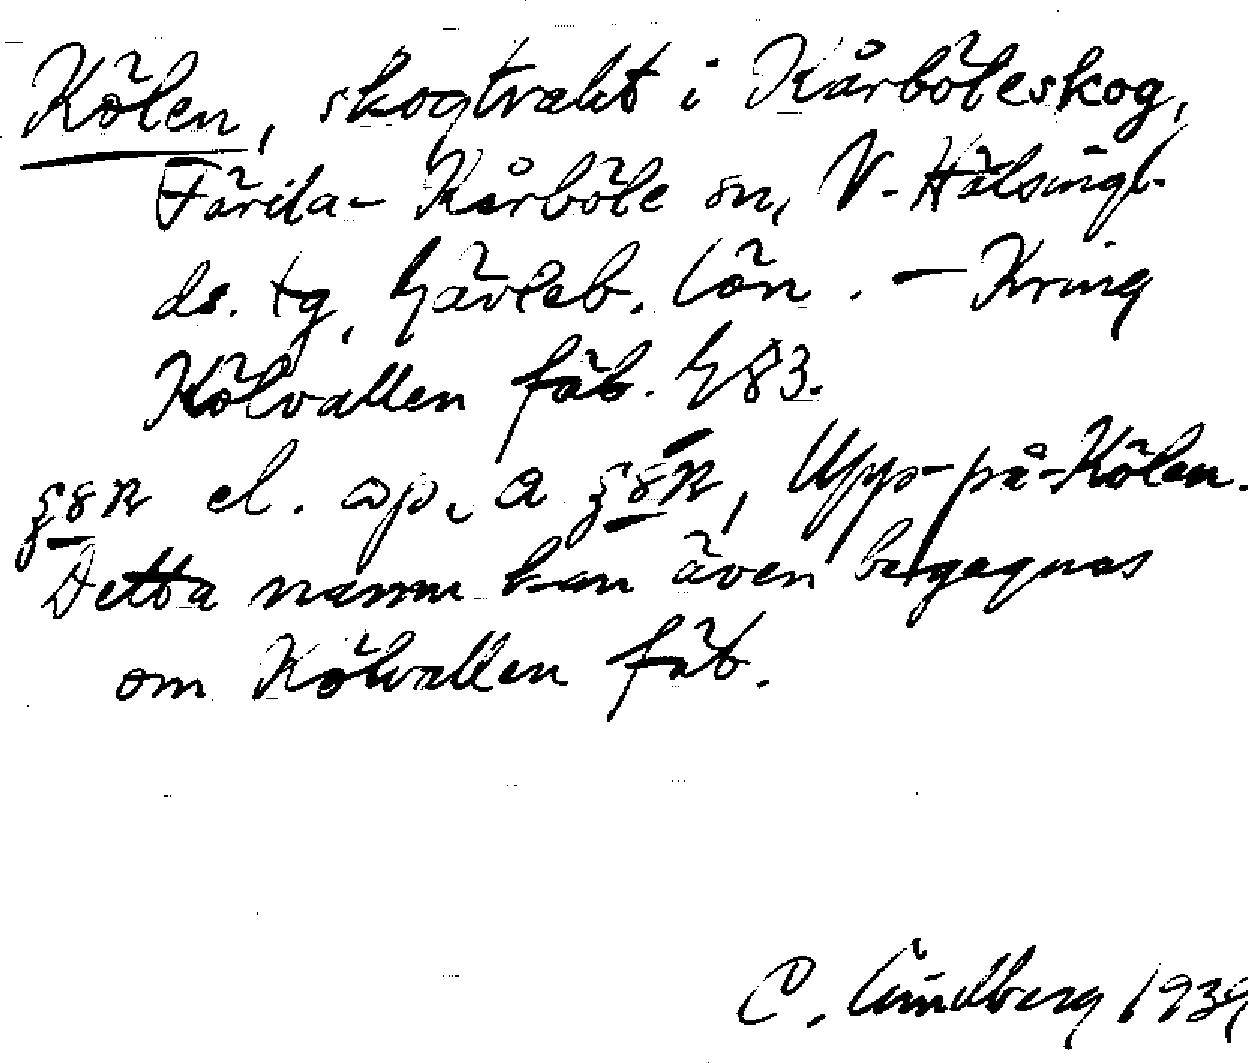 Kölen, skogtrakt i Kårböleskog,
Färila-Kårböle sn, V. Hälsingl.
ds. tg, Gävleb. län. - Kring
Kölvallen fäb. G 83.
el. op. a Upp-på-Kölen.
Detta namn kan även begagnas
om Kölvallen fäb.
C. Lindberg 1939